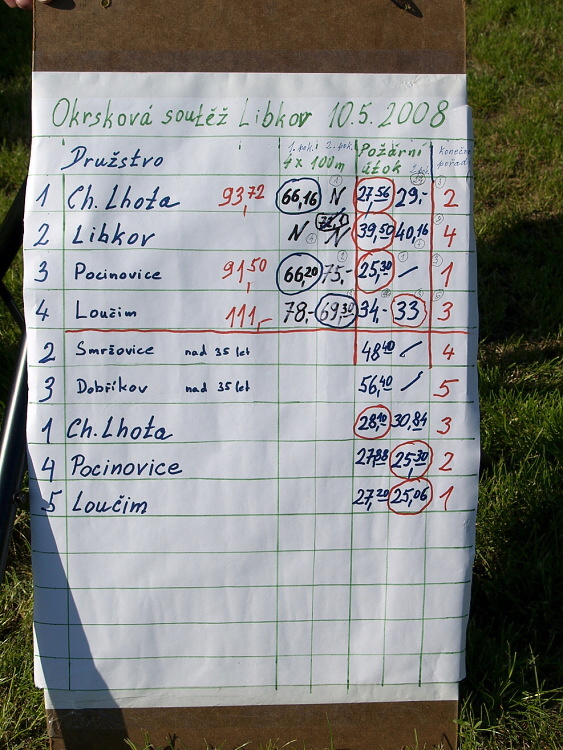 Okrsková soutěž Libkov 10.5.2008
Družstvo 1. pok. 2. pok. 4 x 100m Požární útok Konečné pořad.
1 Ch. Lhota 93,72 66,16 N 27,56 29,- 2
2 Libkov N N 39,50 40,16 4
3 Pocinovice 91,50 66,20 75,- 25,30 / 1
4 Loučim 111,- 78,- 69,30 34,- 33 3
2 Smržovice nad 35 let 48,40 / 4
3 Dobříkov nad 35 let 56,40 / 5
1 Ch. Lhota 28,10 30,84 3
4 Pocinovice 27,88 25,30 2
5 Loučim 27,20 25,06 1